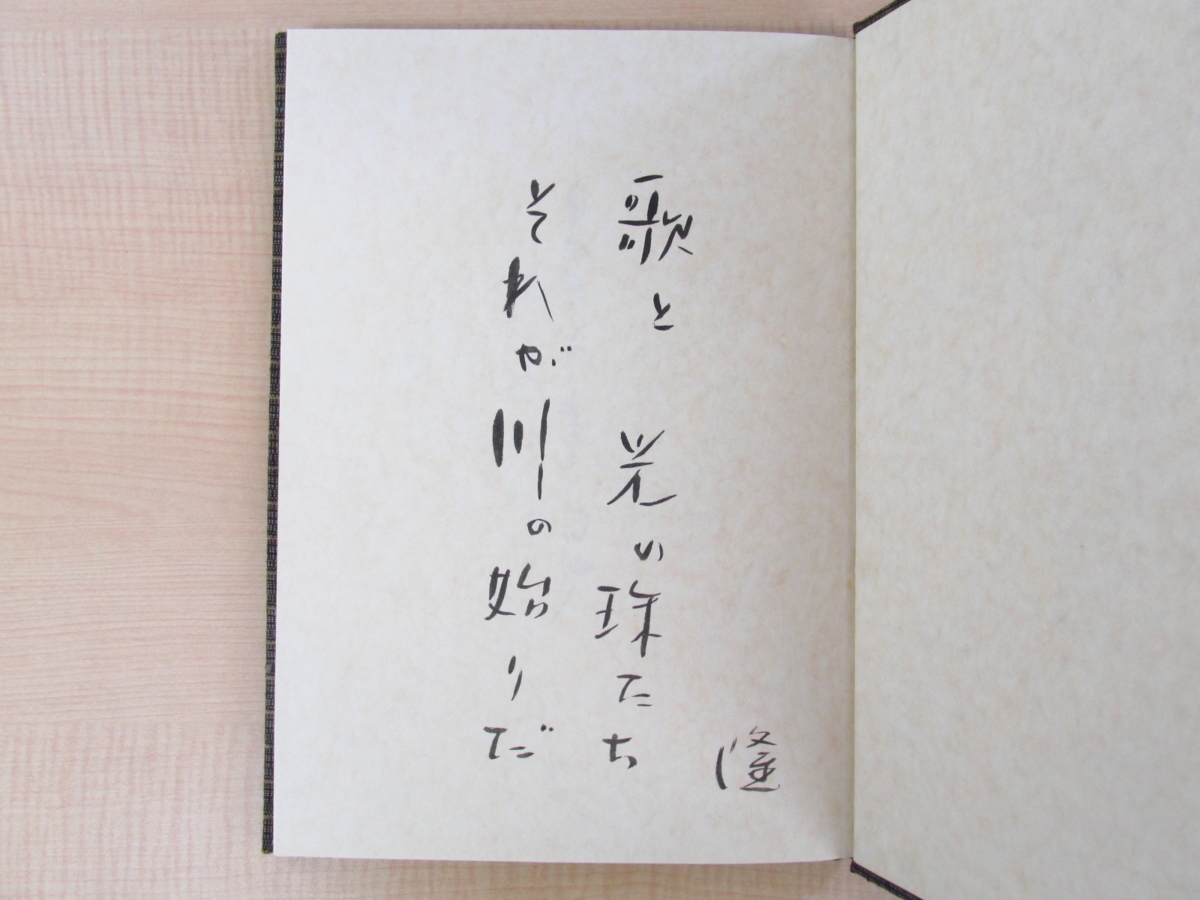 歌と 光の珠たち
それが川の始りだ
隆